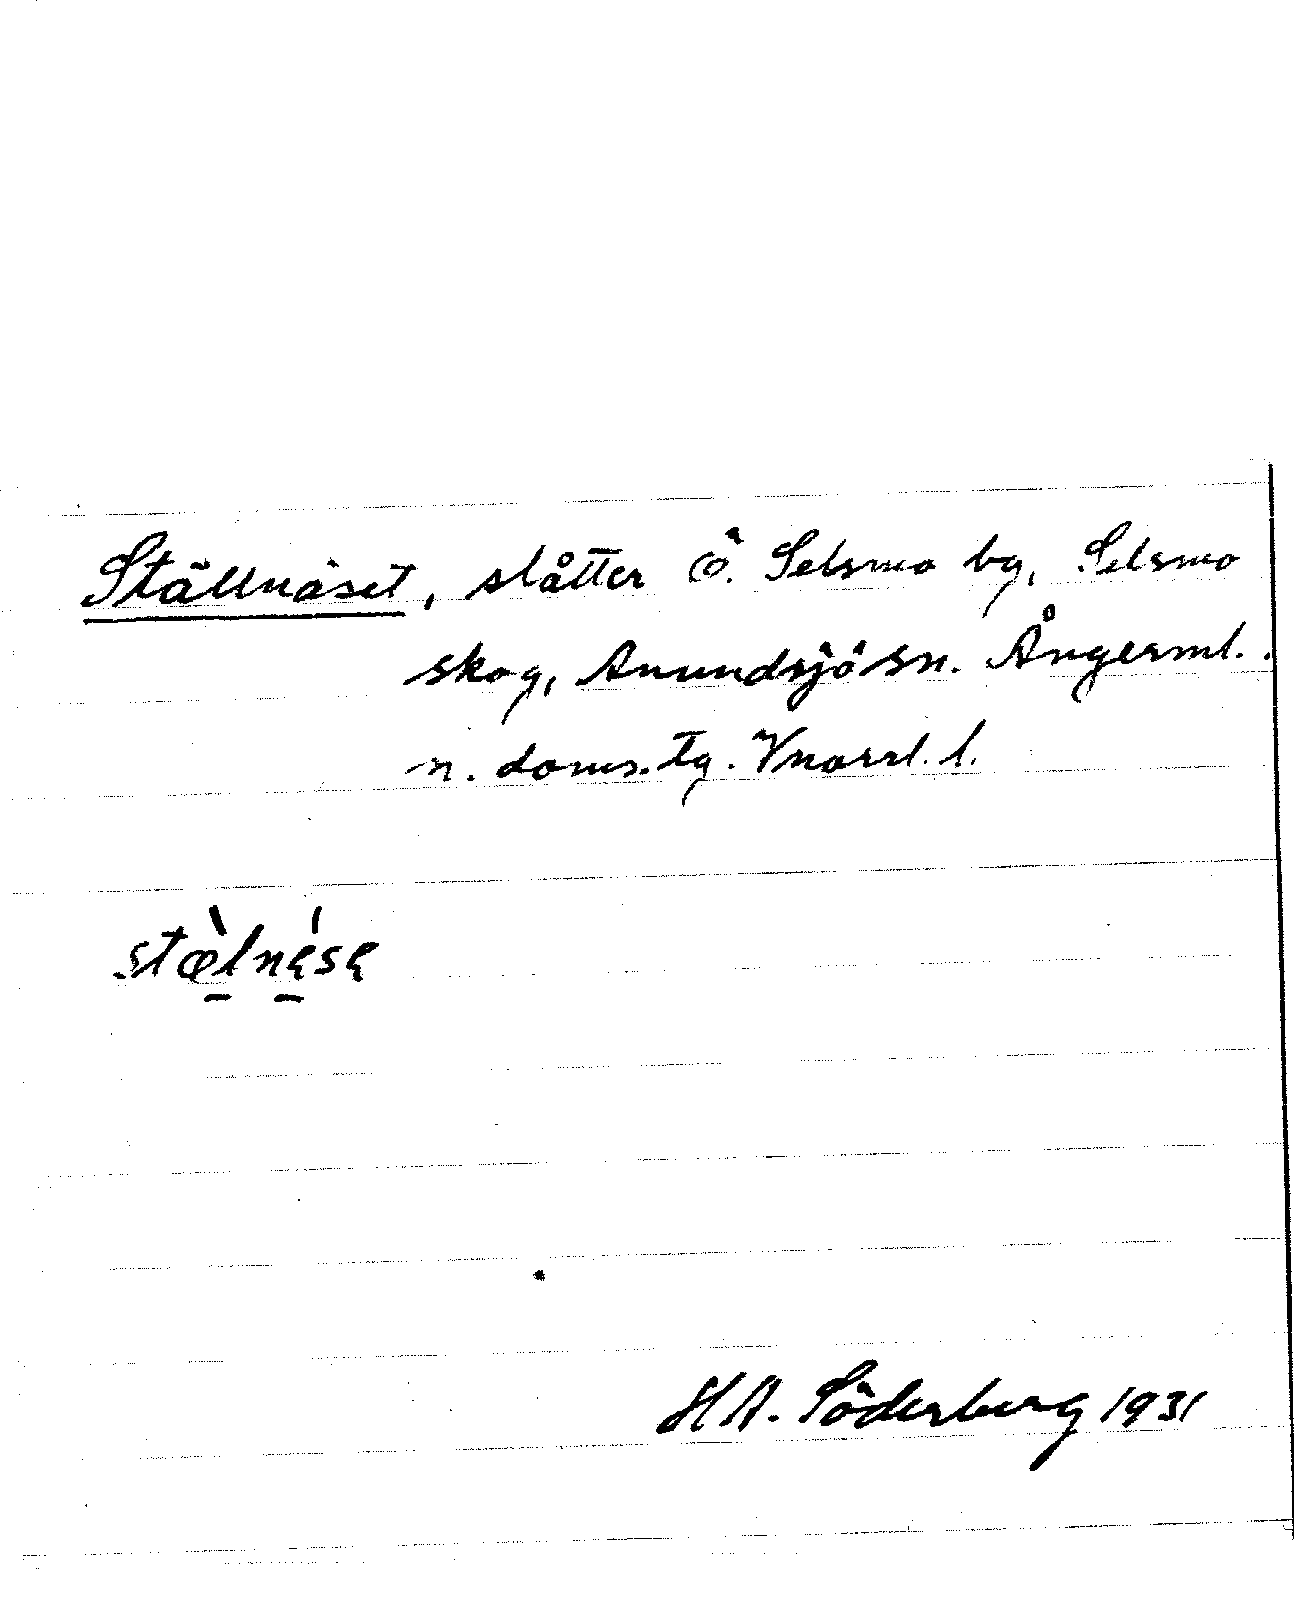 Ställnäset, slåtter Ö. Selsmo bg, Selsmo
skog, Anundsjö sn. Ångerml.
n. doms. tg. Vnorrl. l.
stæ̀lnę́sę
H A. Söderberg 1931